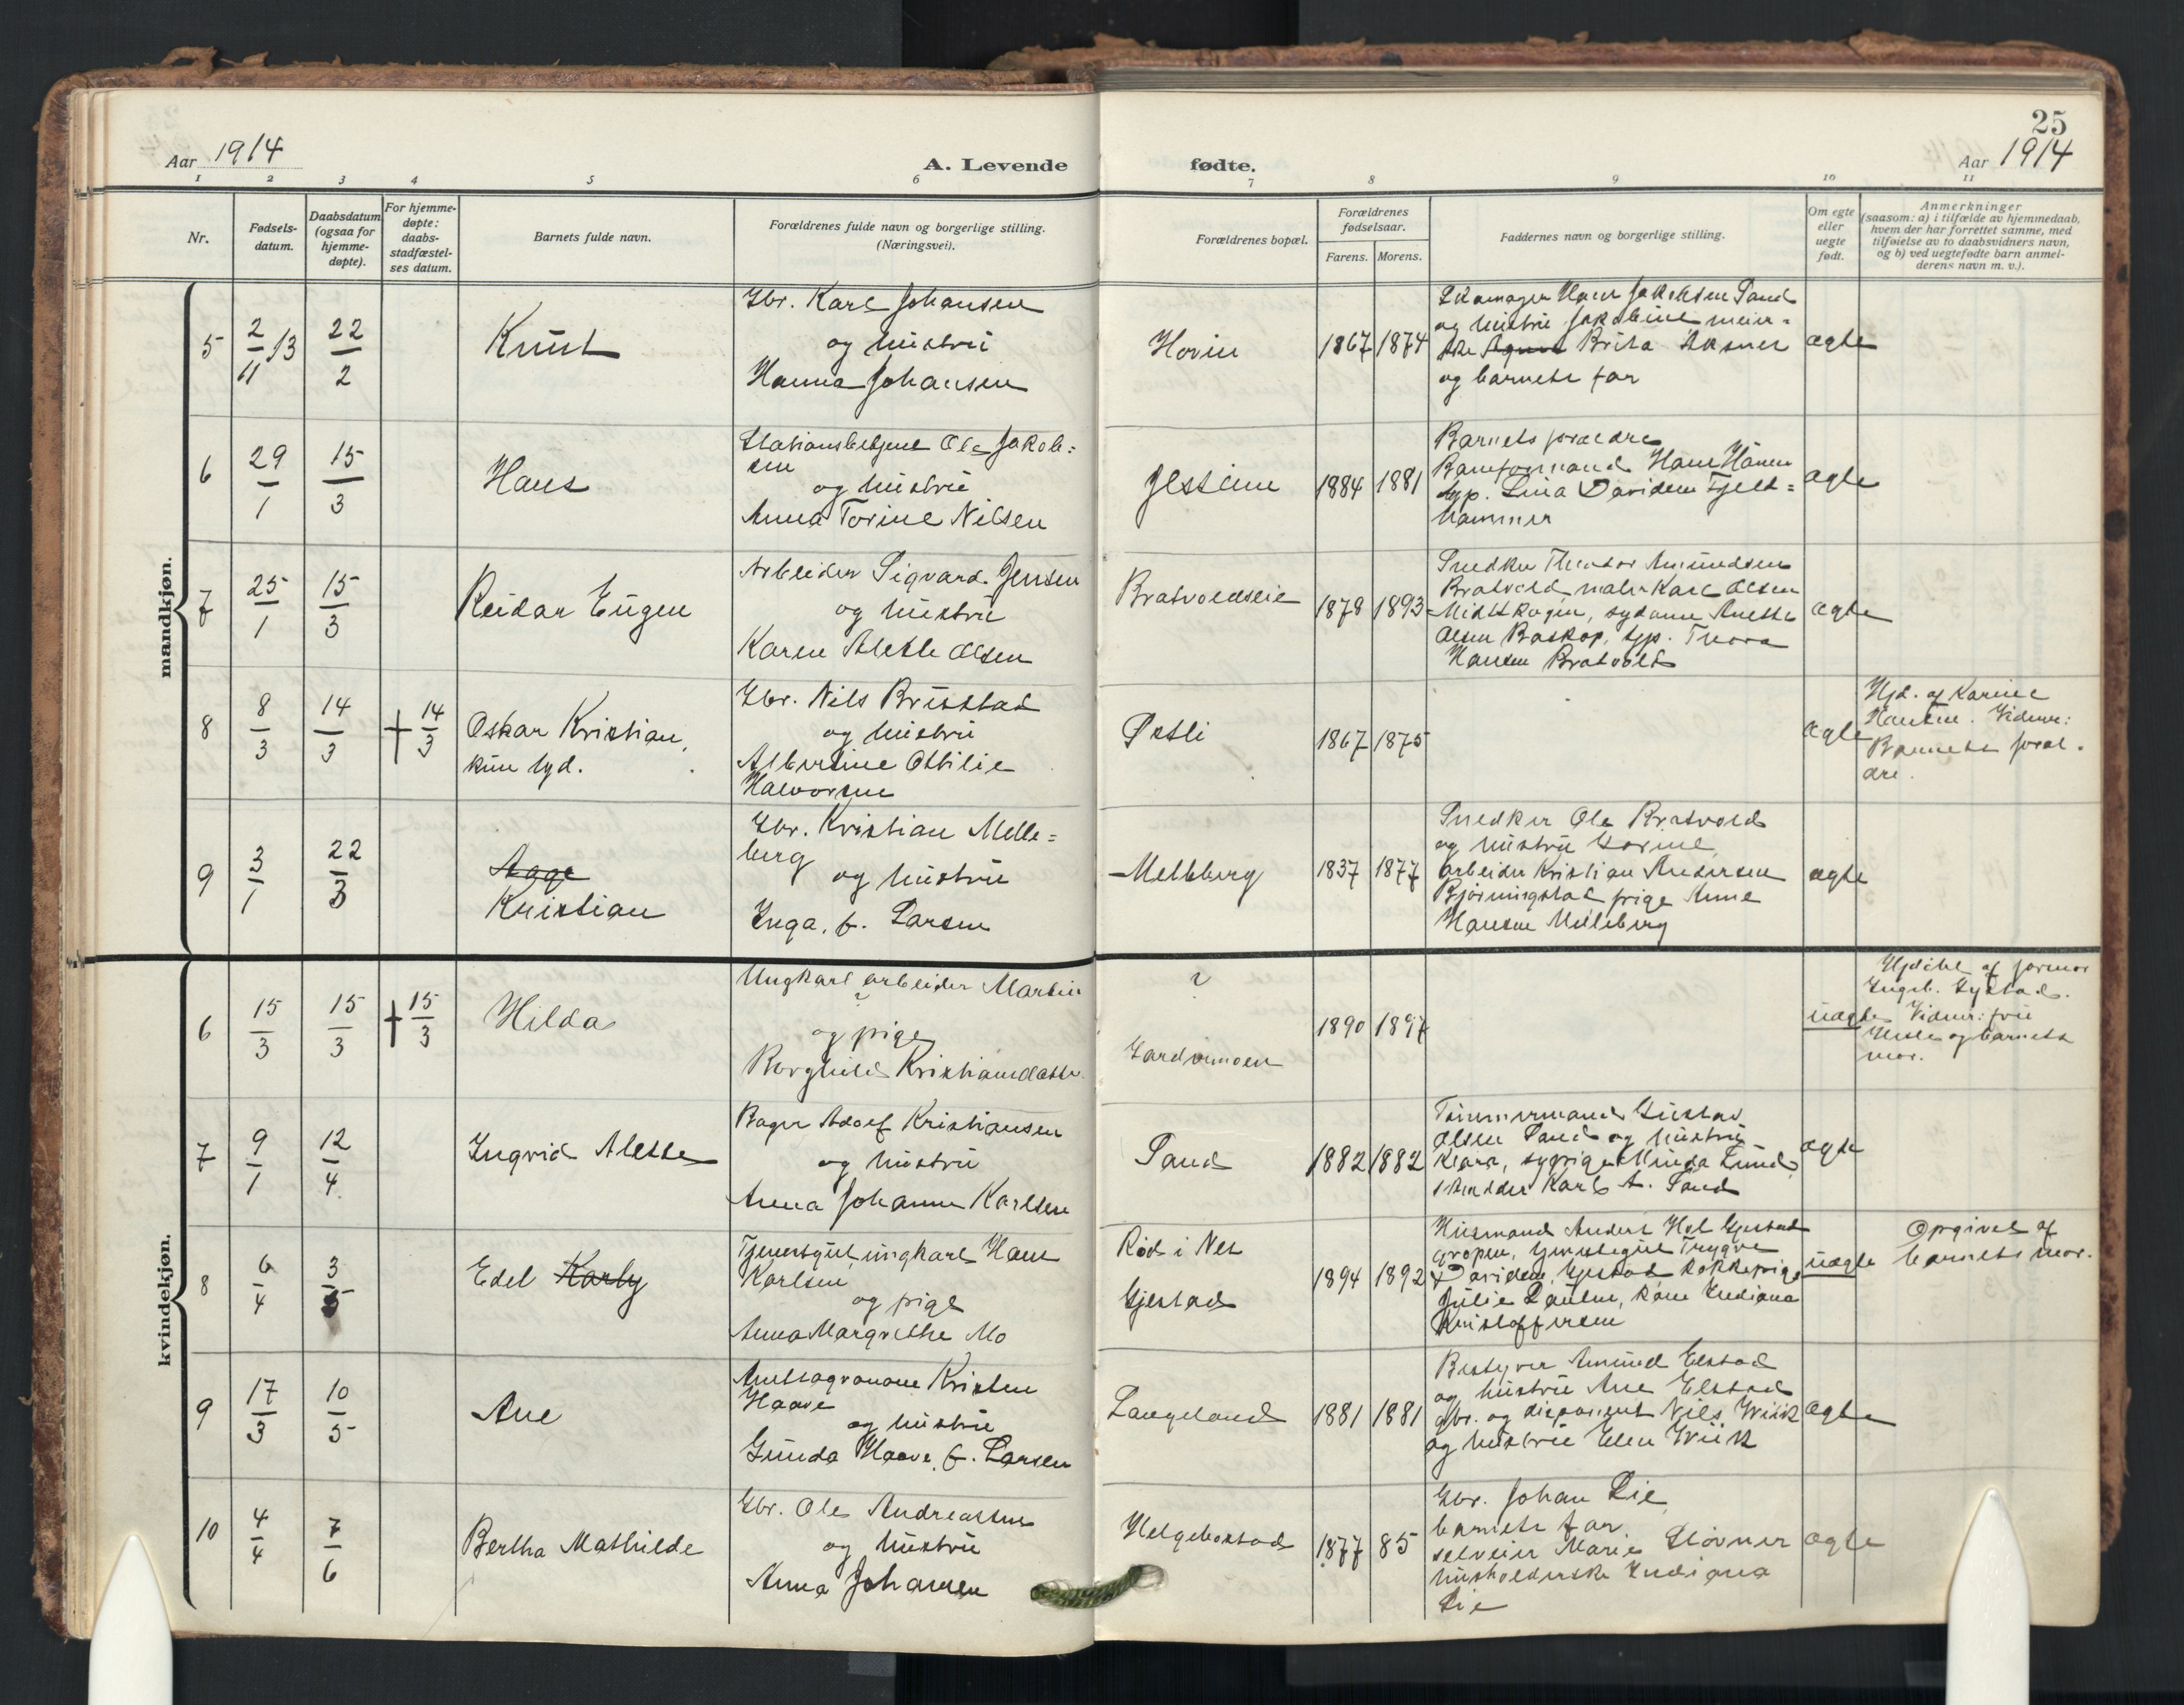 25
Aar 1914
A. Levende
fødte.
Aar 1914
1 2 3 4 5 6 7 8 9 10 11
Nr.
Fødsels-
datum.
Daabsdatum
(ogsaa for
hjemme-
døpte).
For hjemme-
døpte:
daabs-
stadfæstel-
ses datum.
Barnets fulde navn.
Forældrenes fulde navn og borgerlige stilling.
(Næringsvei).
Forældrenes bopæl.
Forældrenes
fødselsaar.
Farens. Morens.
Faddernes navn og borgerlige stilling.
Om egte
eller
uegte
født.
Anmerkninger
(saasom: a) i tilfælde av hjemmedaab,
hvem der har forrettet samme, med
tilføielse av to daabsvidners navn,
og b) ved uegtefødte barn anmel-
derens navn m. v.).
mandkjøn.
5
2/11 13
22/2
Knut
Gbr. Karl Johansen
og hustru
Hanna Johansen
Hovin
1867 1874
Skomager Hans Jakobsen Sand
og hustru Jakobine meier=
ske Agnes Brita Asmer
og barnets far
ægte
6
29/1
15/3
Hans
Stationsbetjent Ole Jakob=
sen
og hustru
Anna Torine Nilsen
Jessheim
1884 1881
Barnets forældre
Baneformand Hans Hansen
syp. Lina Davidsen Fjeld=
hammer
ægte
7
25/1
15/3
Reidar Eugen
Arbeider Sigvard Jensen
og hustru
Karen Alette Olsen
Bratvoldseie
1878 1893
Snedker Theodor Amundsen
Bratvold maler Karl Olsen
Midtskogen, sydame Anette
Olsen Baskop, syp. Thora
Hansen Bratvold
ægte
8
8/3
14/3
† 14/3
Oskar Kristian,
kun lyd.
Gbr. Nils Brustad
og hustru
Albertine Othilie
Halvorsen
Sætli
1867 1875
ægte
Hjd. af Karine
Hansen. Vidner:
Barnets foræl-
dre.
9
3/1
22/3
Aage
Kristian
Gbr. Kristian Melle=
berg
og hustru
Inga, f. Larsen
Melleberg
1837 1877
Snedker Ole Bratvold
og hustru Gorine,
arbeider Kristian Andersen
Bjørningstad pige Anne
Hansen Melleberg
ægte
kvindekjøn.
6
15/3
15/3
† 15/3
Hilda
Ungkarl arbeider Martin
?
og pige
Borghild Kristiansdatter
?
Gardermoen
1890 1897
uægte
Hjdøbt af formor
Ingeb. Gystad.
Vidner: fru
og barnets
mor.
7
9/1
12/4
Ingvid Alette
Bager Adolf Kristiansen
og hustru
Anna Johanne Karlsen
Sand
1882 1882
Tømmermand Gustav
Olsen Sand og hustru
Klara, sypige Minda Lund,
Karl A. Sand
ægte
8
6/4
3/5
Edel Karly
Tjenestgut, ungkarl Hans
Karlsen
og pige
Anna Margrethe Mo
Rød i Nes
Gjestad
1894 1892
Husmand Anders Hol Gjestad
gropen, tjenestegut Trygve
Davidsen, Gjestad kokkepige
Julie Paulsen, kone Indiana
Kristoffersen
uægte
Opgivet af
barnets mor.
9
17/3
10/5
Ane
Amtsagronom Kristen
Haave
og hustru
Gunda Haave, f. Larsen
Langeland
1881 1881
Bestyrer Amund Elstad
og hustru Ane Elstad
gbr. og disponent Nils Wiik
og hustru Elen Wiik
ægte
10
4/4
7/6
Bertha Mathilde
Gbr. Ole Andreassen
og hustru
Anna Johansen
Helgebostad
1877 85
Gbr. Johan Lie,
barnets far,
selveier Marie Sløvner
husholderske Indiana
Lie
ægte